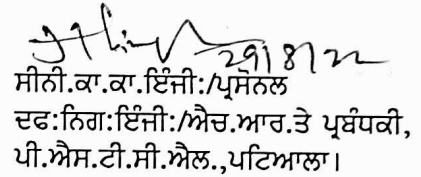 29/8/22
ਸੀਨੀ.ਕਾ.ਕਾ.ਇੰਜੀ:/ਪ੍ਰਸੋਨਲ
ਦਫ:ਨਿਗ:ਇੰਜੀ:/ਐਚ.ਆਰ.ਤੇ ਪ੍ਰਬੰਧਕੀ,
ਪੀ.ਐਸ.ਟੀ.ਸੀ.ਐਲ.,ਪਟਿਆਲਾ।